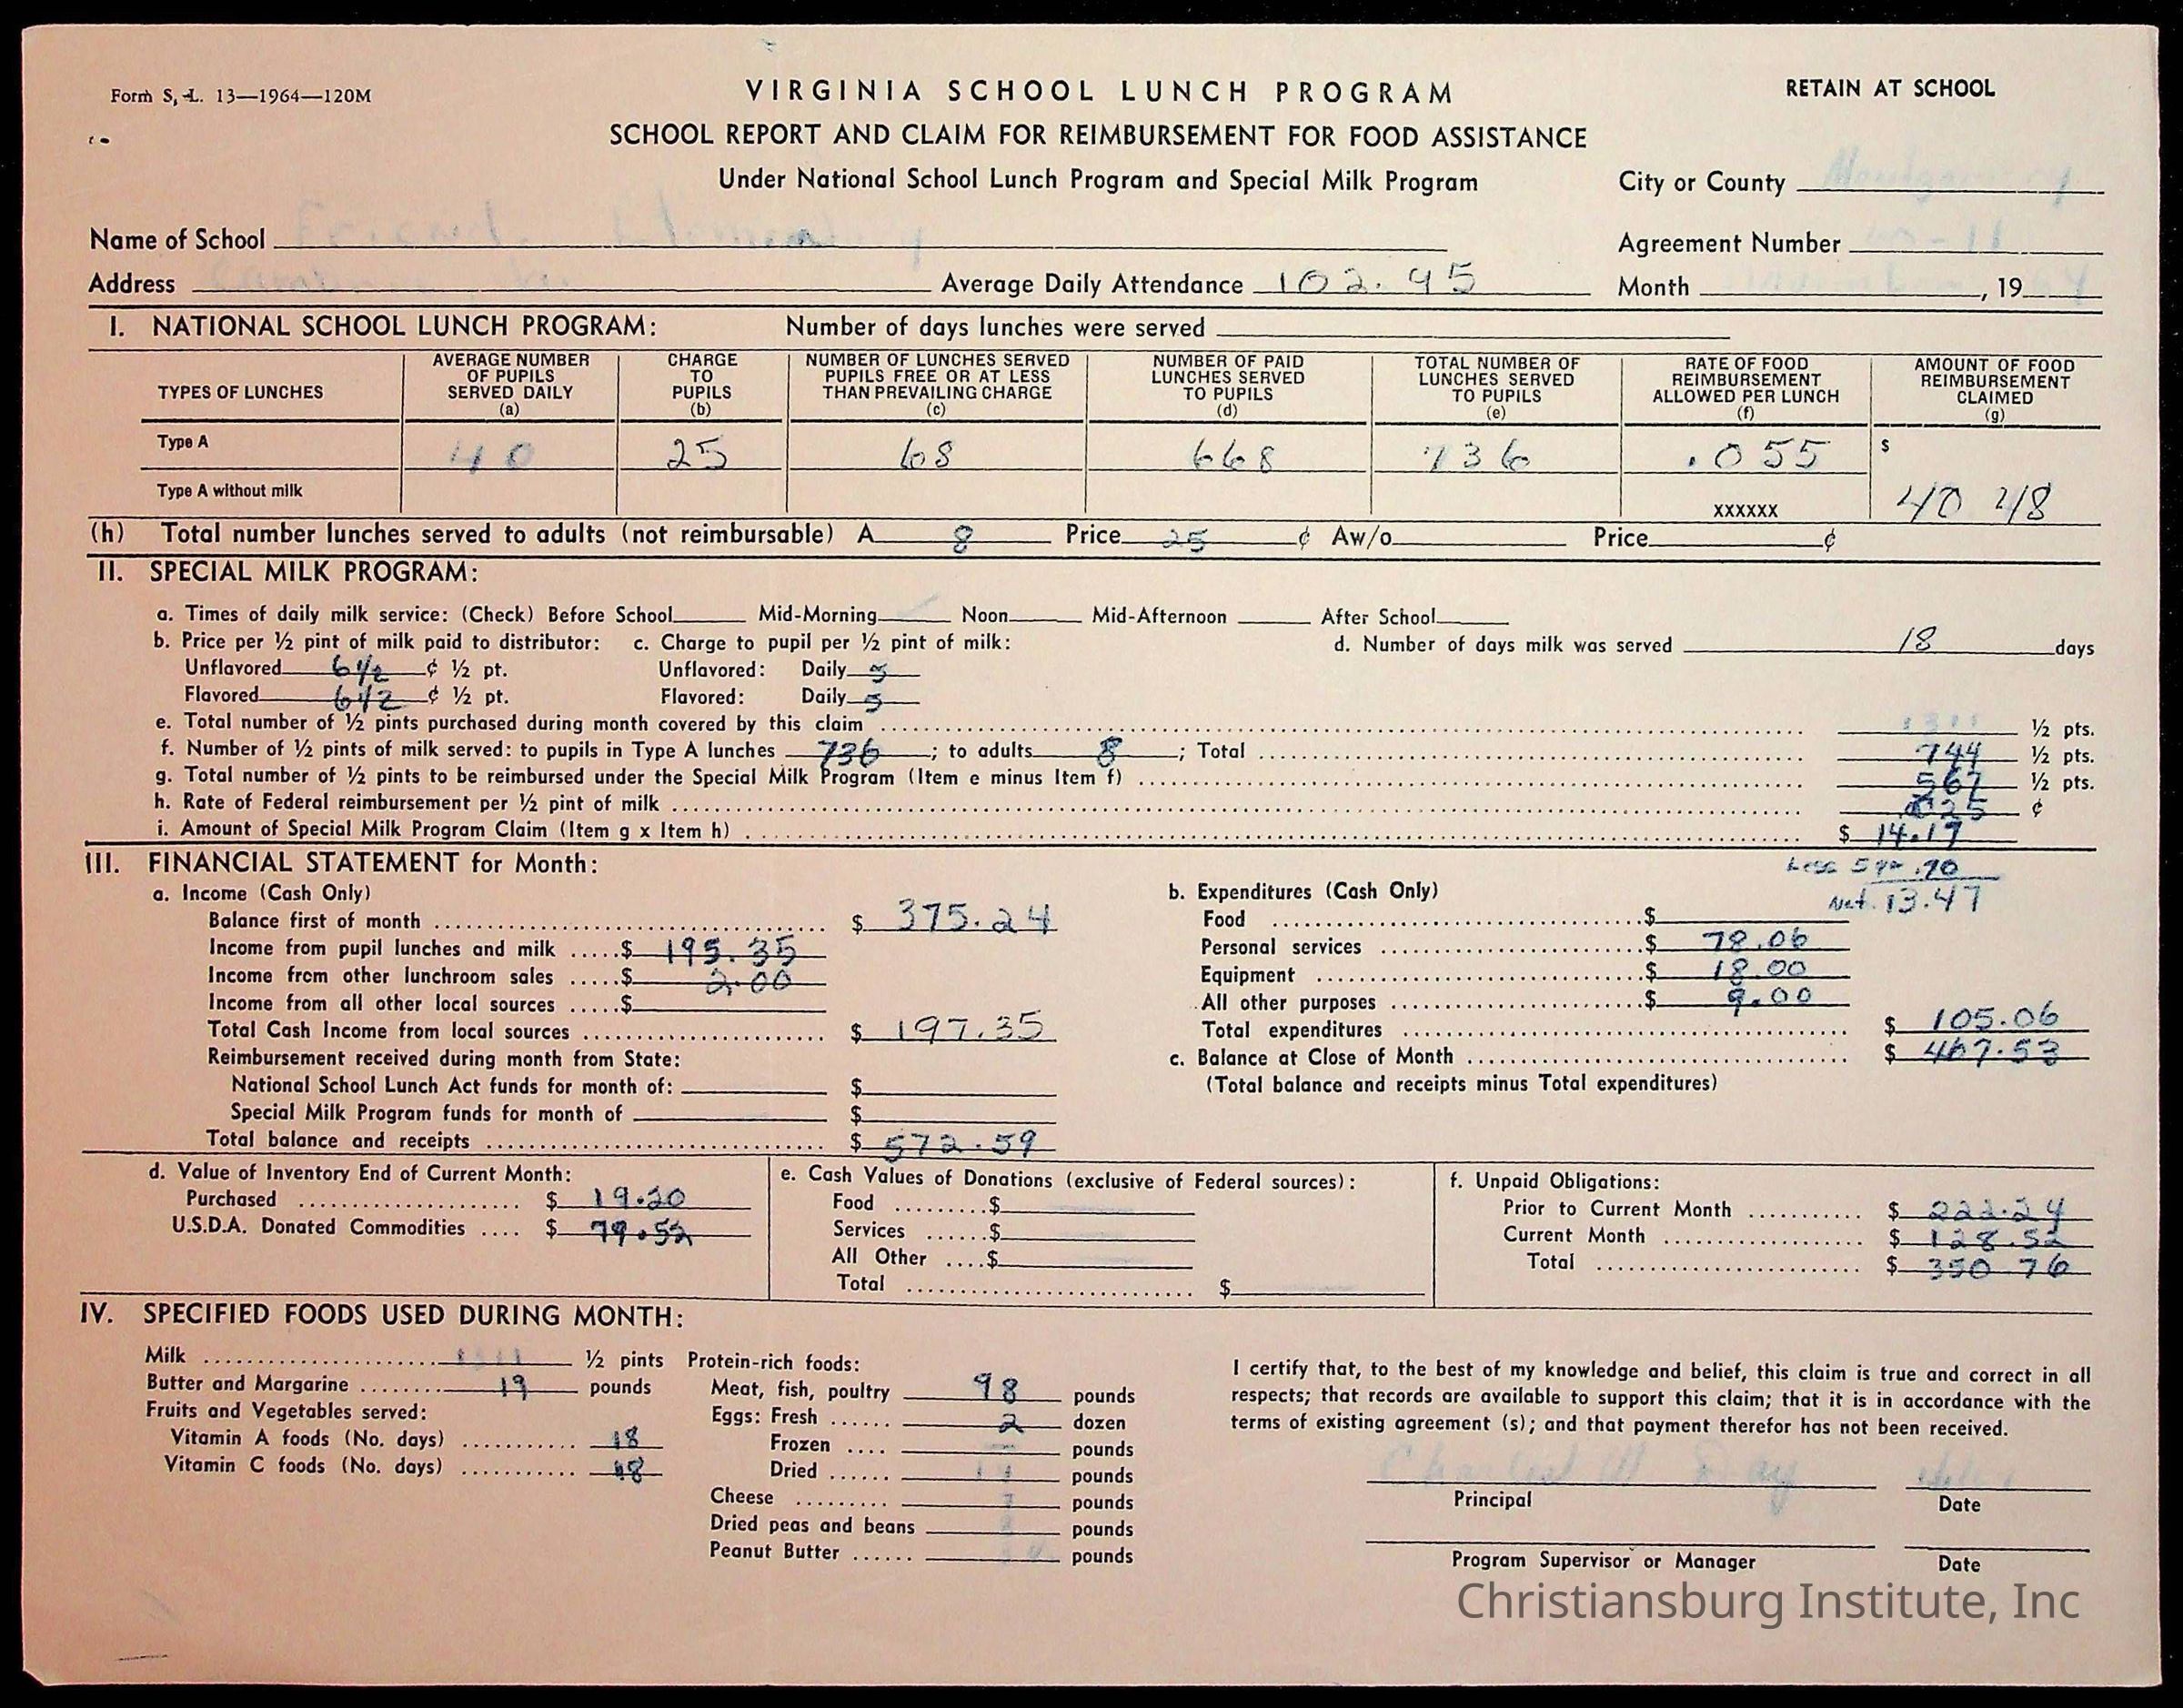 Form S. L. 13—1964—120M
VIRGINIA SCHOOL LUNCH PROGRAM
RETAIN AT SCHOOL
SCHOOL REPORT AND CLAIM FOR REIMBURSEMENT FOR FOOD ASSISTANCE
Under National School Lunch Program and Special Milk Program
City or County Montgomery
Name of School
Agreement Number
Address
Average Daily Attendance 102.95
Month , 19
I. NATIONAL SCHOOL LUNCH PROGRAM: Number of days lunches were served
TYPES OF LUNCHES
AVERAGE NUMBER OF PUPILS SERVED DAILY (a)
CHARGE TO PUPILS (b)
NUMBER OF LUNCHES SERVED PUPILS FREE OR AT LESS THAN PREVAILING CHARGE (c)
NUMBER OF PAID LUNCHES SERVED TO PUPILS (d)
TOTAL NUMBER OF LUNCHES SERVED TO PUPILS (e)
RATE OF FOOD REIMBURSEMENT ALLOWED PER LUNCH (f)
AMOUNT OF FOOD REIMBURSEMENT CLAIMED (g)
Type A 40 25 68 668 736 .055 $
Type A without milk XXXXXX 40 48
(h) Total number lunches served to adults (not reimbursable) A 8 Price 25 ¢ Aw/o Price ¢
II. SPECIAL MILK PROGRAM:
a. Times of daily milk service: (Check) Before School Mid-Morning ✓ Noon Mid-Afternoon After School
b. Price per ½ pint of milk paid to distributor: c. Charge to pupil per ½ pint of milk: d. Number of days milk was served 18 days
Unflavored 6½ ¢ ½ pt. Unflavored: Daily 5
Flavored 6½ ¢ ½ pt. Flavored: Daily 5
e. Total number of ½ pints purchased during month covered by this claim 1311 ½ pts.
f. Number of ½ pints of milk served: to pupils in Type A lunches 736; to adults 8; Total 744 ½ pts.
g. Total number of ½ pints to be reimbursed under the Special Milk Program (Item e minus Item f) 567 ½ pts.
h. Rate of Federal reimbursement per ½ pint of milk .025 ¢
i. Amount of Special Milk Program Claim (Item g x Item h) $ 14.17
Less .70
Net. 13.47
III. FINANCIAL STATEMENT for Month:
a. Income (Cash Only)
Balance first of month $ 375.24
Income from pupil lunches and milk $ 195.35
Income from other lunchroom sales $ 2.00
Income from all other local sources $
Total Cash Income from local sources $ 197.35
Reimbursement received during month from State:
National School Lunch Act funds for month of: $
Special Milk Program funds for month of $
Total balance and receipts $ 572.59
b. Expenditures (Cash Only)
Food $
Personal services $ 78.06
Equipment $ 18.00
All other purposes $ 9.00
Total expenditures $ 105.06
c. Balance at Close of Month $ 467.53
(Total balance and receipts minus Total expenditures)
d. Value of Inventory End of Current Month:
Purchased $ 19.20
U.S.D.A. Donated Commodities $ 79.52
e. Cash Values of Donations (exclusive of Federal sources):
Food $
Services $
All Other $
Total $
f. Unpaid Obligations:
Prior to Current Month $ 222.24
Current Month $ 128.52
Total $ 350 76
IV. SPECIFIED FOODS USED DURING MONTH:
Milk 1311 ½ pints
Butter and Margarine 19 pounds
Fruits and Vegetables served:
Vitamin A foods (No. days) 18
Vitamin C foods (No. days) 18
Protein-rich foods:
Meat, fish, poultry 98 pounds
Eggs: Fresh 2 dozen
Frozen pounds
Dried pounds
Cheese pounds
Dried peas and beans pounds
Peanut Butter pounds
I certify that, to the best of my knowledge and belief, this claim is true and correct in all
respects; that records are available to support this claim; that it is in accordance with the
terms of existing agreement (s); and that payment therefor has not been received.
Principal
Date
Program Supervisor or Manager
Date
Christiansburg Institute, Inc